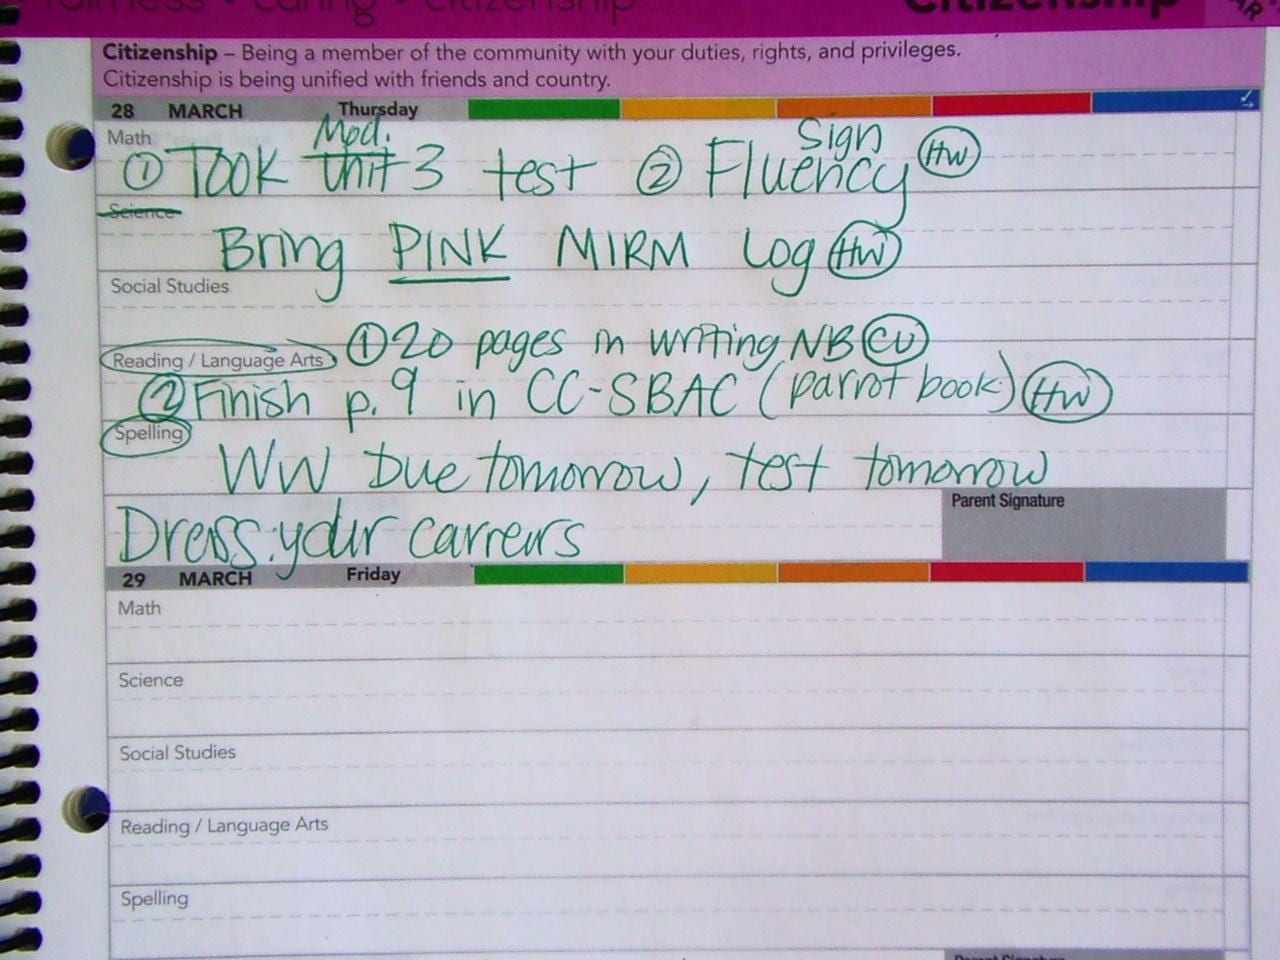 fairness • caring • citizenship Citizenship
Citizenship – Being a member of the community with your duties, rights, and privileges.
Citizenship is being unified with friends and country.
28 MARCH Thursday
Math
Mod. Sign
① TOOK Unit 3 test ② Fluency HW
Science
Bring PINK MIRM Log HW
Social Studies
Reading / Language Arts ① 20 pages in writing NB CW
② Finish p. 9 in CC-SBAC (parrot book) HW
Spelling
WW Due tomorrow, test tomorrow
Parent Signature
Dress: your carreurs
29 MARCH Friday
Math
Science
Social Studies
Reading / Language Arts
Spelling
Parent Signature